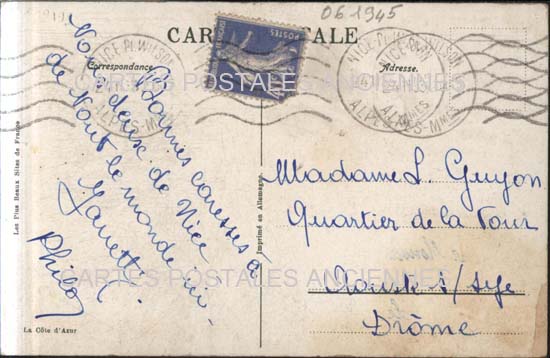 CARTE POSTALE
061945
Correspondance
Adresse.
POSTES
NICE PL. WILSON
ALPES-Mmes
NICE PL. WILSON
ALPES-Mmes
CARTES POSTALES ANCIENNES
Bonnes caresses à
Nous deux de Nice
de tout le monde ici
Yanette
Philo
Madame L. Guyon
Quartier de la Tour
Drôme
CARTES POSTALES ANCIENNES
Les Plus Beaux Sites de France
Imprimé en Allemagne
La Côte d'Azur